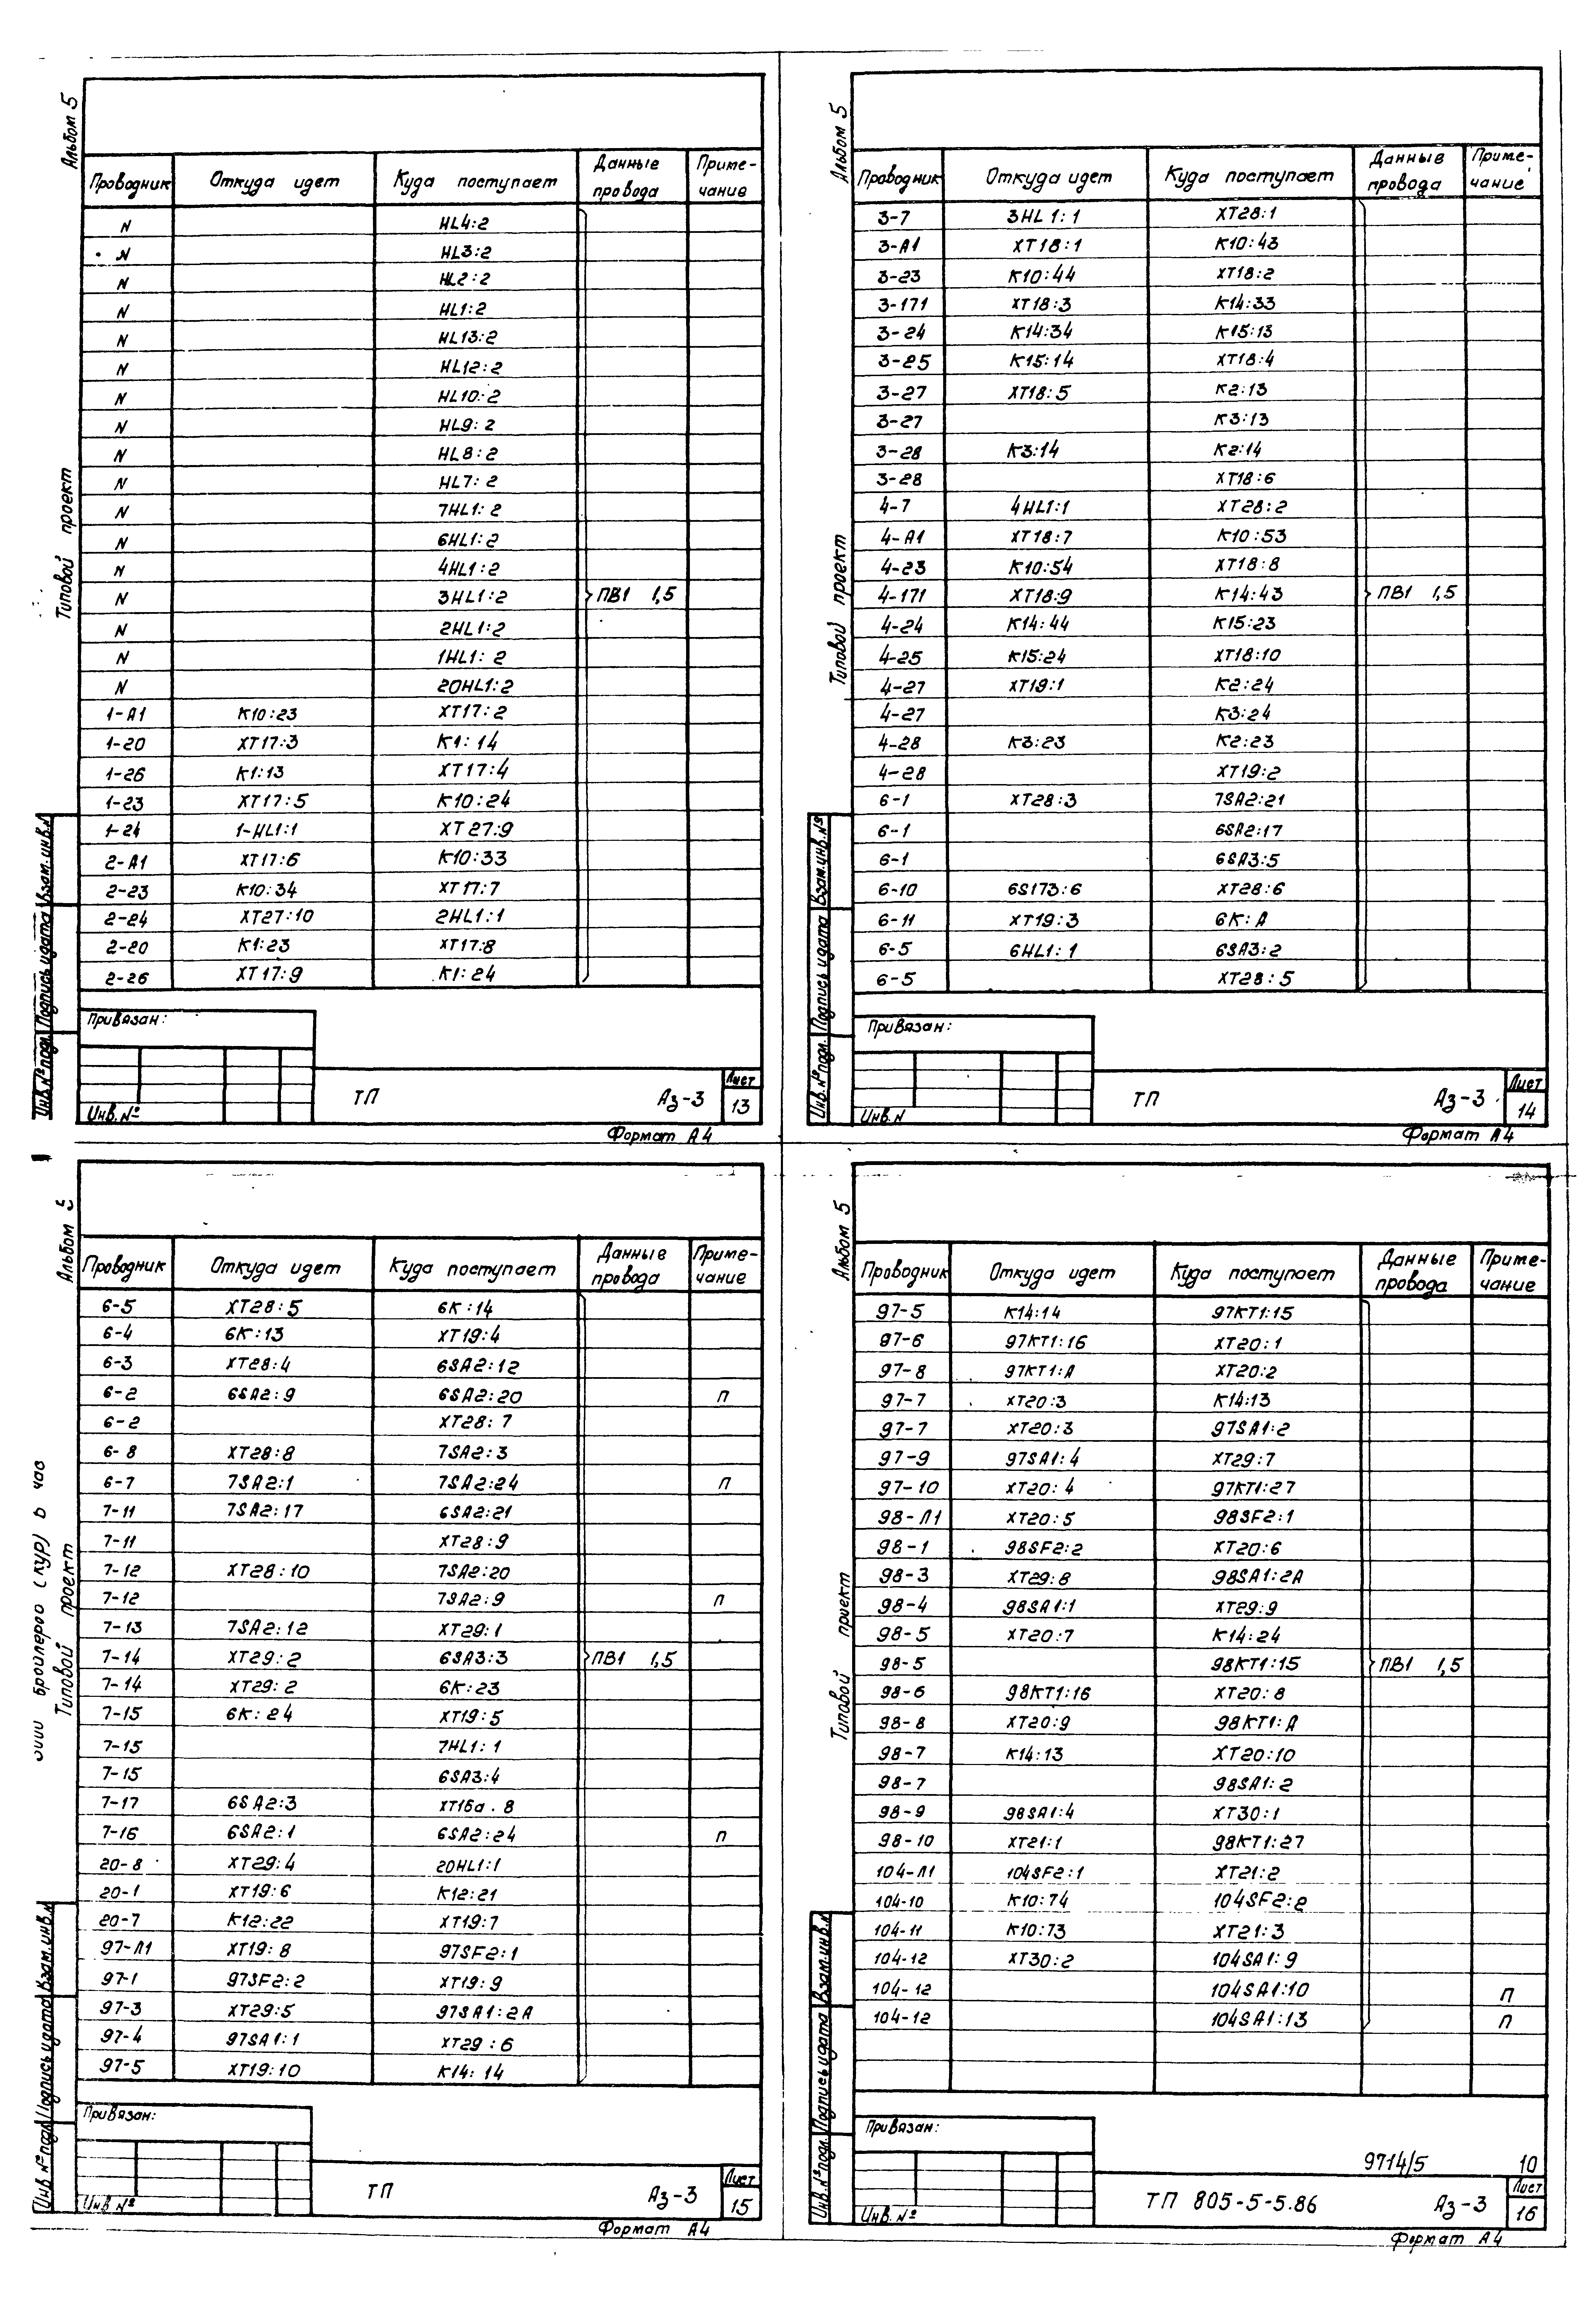 Альбом 5
Типовой проект
Проводник Откуда идет Куда поступает Данные провода Примечание
N HL4:2
N HL3:2
N HL2:2
N HL1:2
N HL13:2
N HL12:2
N HL10:2
N HL9:2
N HL8:2
N HL7:2
N 7HL1:2
N 6HL1:2
N 4HL1:2
N 3HL1:2 ПВ1 1,5
N 2HL1:2
N 1HL1:2
N 20HL1:2
1-A1 K10:23 XT17:2
1-20 XT17:3 K1:14
1-26 K1:13 XT17:4
1-23 XT17:5 K10:24
1-24 1-HL1:1 XT27:9
2-A1 XT17:6 K10:33
2-23 K10:34 XT17:7
2-24 XT27:10 2HL1:1
2-20 K1:23 XT17:8
2-26 XT17:9 K1:24
Инв.№ подл. Подпись и дата Взам.инв.№
Привязан:
Инв.№
ТП Аз-3 Лист 13
Формат А4
Альбом 5
Типовой проект
Проводник Откуда идет Куда поступает Данные провода Примечание
3-7 3HL1:1 XT28:1
3-A1 XT18:1 K10:43
3-23 K10:44 XT18:2
3-171 XT18:3 K14:33
3-24 K14:34 K15:13
3-25 K15:14 XT18:4
3-27 XT18:5 K2:13
3-27 K3:13
3-28 K3:14 K2:14
3-28 XT18:6
4-7 4HL1:1 XT28:2
4-A1 XT18:7 K10:53
4-23 K10:54 XT18:8
4-171 XT18:9 K14:43 ПВ1 1,5
4-24 K14:44 K15:23
4-25 K15:24 XT18:10
4-27 XT19:1 K2:24
4-27 K3:24
4-28 K3:23 K2:23
4-28 XT19:2
6-1 XT28:3 7SA2:21
6-1 6SA2:17
6-1 6SA3:5
6-10 6S173:6 XT28:6
6-11 XT19:3 6K:A
6-5 6HL1:1 6SA3:2
6-5 XT28:5
Инв.№ подл. Подпись и дата Взам.инв.№
Привязан:
Инв.N
ТП Аз-3 Лист 14
Формат А4
Альбом
бройлеров (кур) в час
Типовой проект
Проводник Откуда идет Куда поступает Данные провода Примечание
6-5 XT28:5 6K:14
6-4 6K:13 XT19:4
6-3 XT28:4 6SA2:12
6-2 6SA2:9 6SA2:20 П
6-2 XT28:7
6-8 XT28:8 7SA2:3
6-7 7SA2:1 7SA2:24 П
7-11 7SA2:17 6SA2:21
7-11 XT28:9
7-12 XT28:10 7SA2:20
7-12 7SA2:9 П
7-13 7SA2:12 XT29:1
7-14 XT29:2 6SA3:3 ПВ1 1,5
7-14 XT29:2 6K:23
7-15 6K:24 XT19:5
7-15 7HL1:1
7-15 6SA3:4
7-17 6SA2:3 XT16а.8
7-16 6SA2:1 6SA2:24 П
20-8 XT29:4 20HL1:1
20-1 XT19:6 K12:21
20-7 K12:22 XT19:7
97-Л1 XT19:8 97SF2:1
97-1 97SF2:2 XT19:9
97-3 XT29:5 97SA1:2A
97-4 97SA1:1 XT29:6
97-5 XT19:10 K14:14
Инв № подл. Подпись и дата Взам.инв.№
Привязан:
Инв.№
ТП Аз-3 Лист 15
Формат А4
Альбом 5
Типовой проект
Проводник Откуда идет Куда поступает Данные провода Примечание
97-5 K14:14 97KT1:15
97-6 97KT1:16 XT20:1
97-8 97KT1:A XT20:2
97-7 XT20:3 K14:13
97-7 XT20:3 97SA1:2
97-9 97SA1:4 XT29:7
97-10 XT20:4 97KT1:27
98-Л1 XT20:5 98SF2:1
98-1 98SF2:2 XT20:6
98-3 XT29:8 98SA1:2A
98-4 98SA1:1 XT29:9
98-5 XT20:7 K14:24
98-5 98KT1:15 ПВ1 1,5
98-6 98KT1:16 XT20:8
98-8 XT20:9 98KT1:A
98-7 K14:13 XT20:10
98-7 98SA1:2
98-9 98SA1:4 XT30:1
98-10 XT21:1 98KT1:27
104-Л1 104SF2:1 XT21:2
104-10 K10:74 104SF2:2
104-11 K10:73 XT21:3
104-12 XT30:2 104SA1:9
104-12 104SA1:10 П
104-12 104SA1:13 П
Инв.№ подл. Подпись и дата Взам.инв.№
Привязан:
Инв.№
9714/5 10
ТП 805-5-5.86 Аз-3 Лист 16
Формат А4